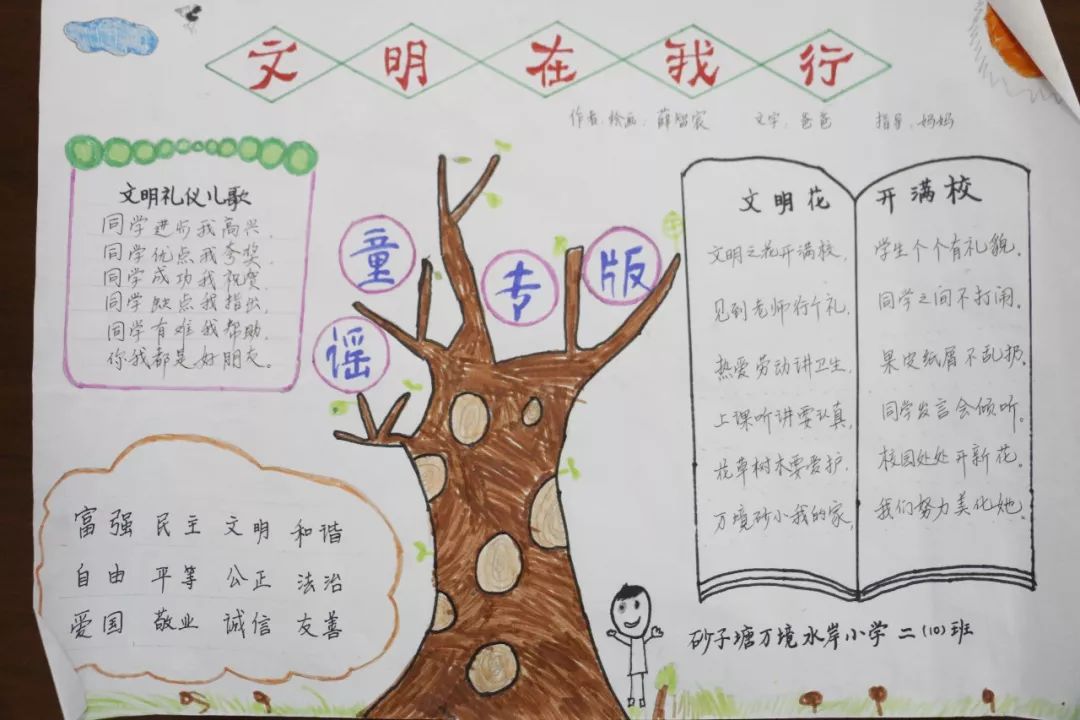 文明在我行
作者:绘画:薛智宸 文字:爸爸 指导:妈妈
文明礼仪儿歌
同学进步我高兴,
同学优点我夸奖,
同学成功我祝贺,
同学缺点我指出,
同学有难我帮助,
你我都是好朋友。
童谣专版
文明花开满校
文明之花开满校,学生个个有礼貌。
见到老师行个礼,同学之间不打闹。
热爱劳动讲卫生,果皮纸屑不乱扔。
上课听讲要认真,同学发言会倾听。
花草树木要爱护,校园处处开新花。
万境砂小我的家,我们努力美化她。
富强 民主 文明 和谐
自由 平等 公正 法治
爱国 敬业 诚信 友善
砂子塘万境水岸小学二(10)班